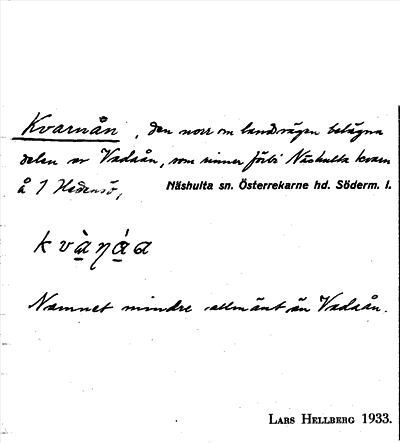 Kvarnån, den norr om landsvägen belägna
delen av Vadaån, som rinner förbi Näshulta kvarn
å 1 Hedensö, Näshulta sn. Österrekarne hd. Söderm. l.
kvà̱ŋá̱a
Namnet mindre allmänt än Vadaån.
LARS HELLBERG 1933.